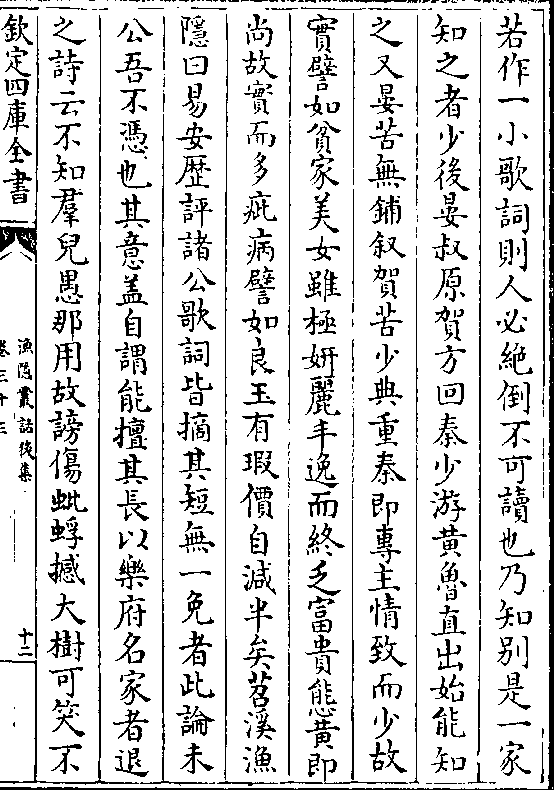 若作一小歌詞則人必絶倒不可讀也乃知别是一家
知之者少後晏叔原賀方回秦少游黄魯直出始能知
之又晏苦無鋪叙賀苦少典重秦即專主情致而少故
實譬如貧家美女雖極妍麗丰逸而終乏富貴態黄即
尚故實而多疵病譬如良玉有瑕價自減半矣苕溪漁
隱曰易安歴評諸公歌詞皆摘其短無一免者此論未
公吾不憑也其意盖自謂能擅其長以樂府名家者退
之詩云不知羣兒愚那用故謗傷蚍蜉撼大樹可笑不
欽定四庫全書
漁隱叢話後集
卷三十三
十二